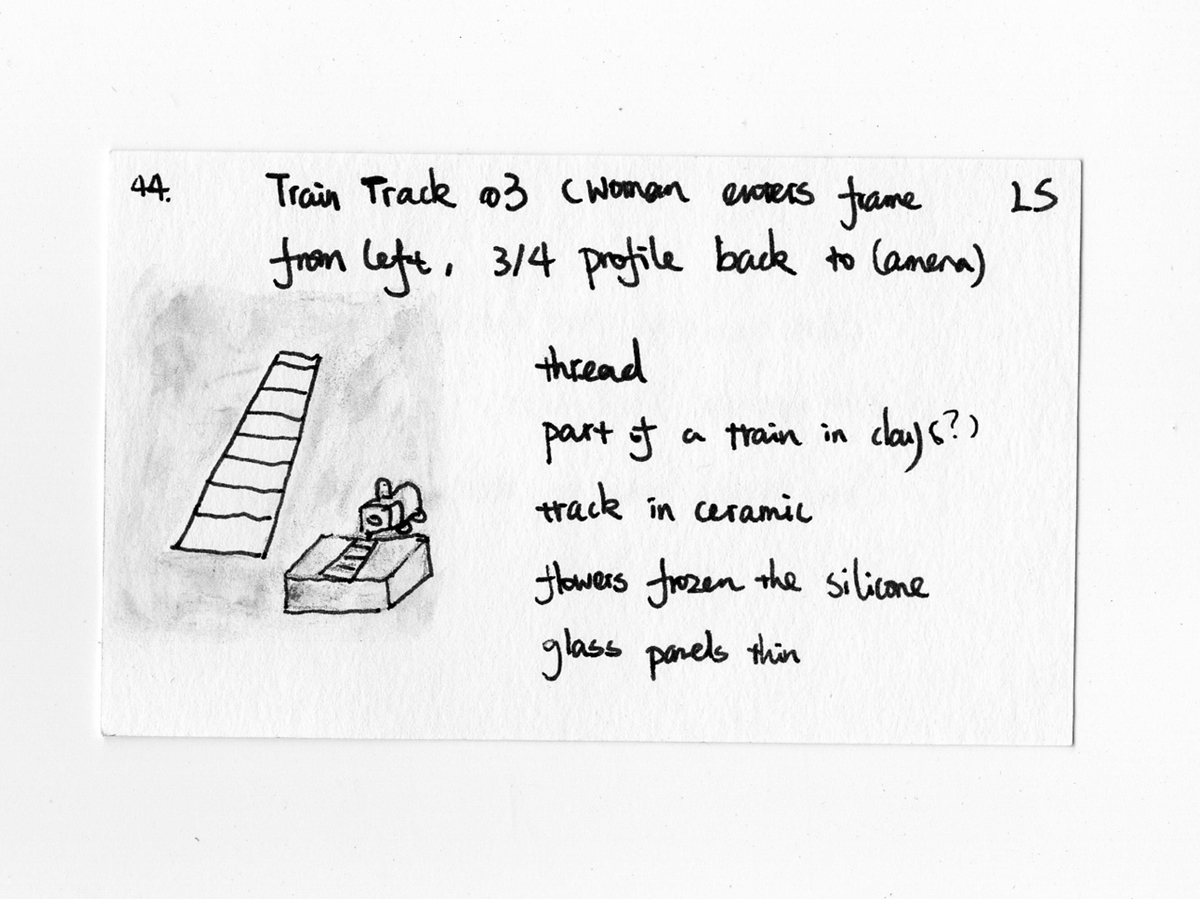 44. Train Track 03 (woman enters frame LS
from left, 3/4 profile back to camera)
thread
part of a train in clay (?)
track in ceramic
flowers frozen the silicone
glass panels thin